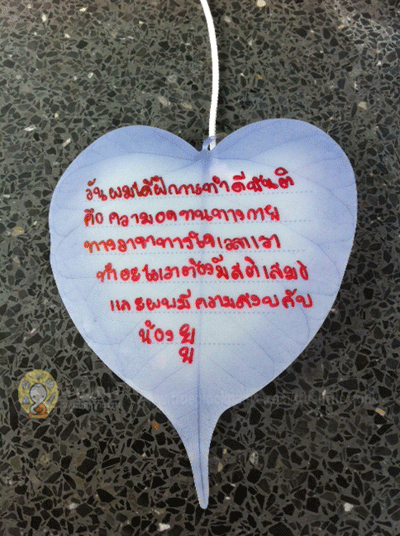 วันผมได้ฝึกการทำดีขันติ
คือ ความอดทนทางกาย
ทางวาจาทางใจ เวลาเรา
ทำอะไรเราต้องมีสติเสมอ
และผมมีความสงบคับ
น้อง ยู